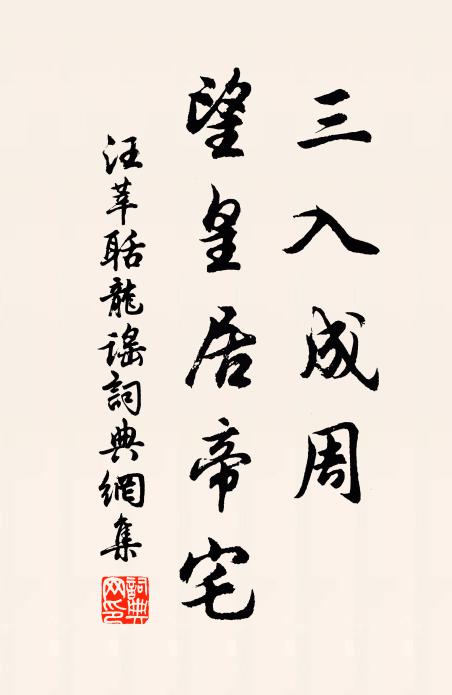 三入成周
望皇居帝宅
汪莘聒龍謠詞典網集
詞典网印